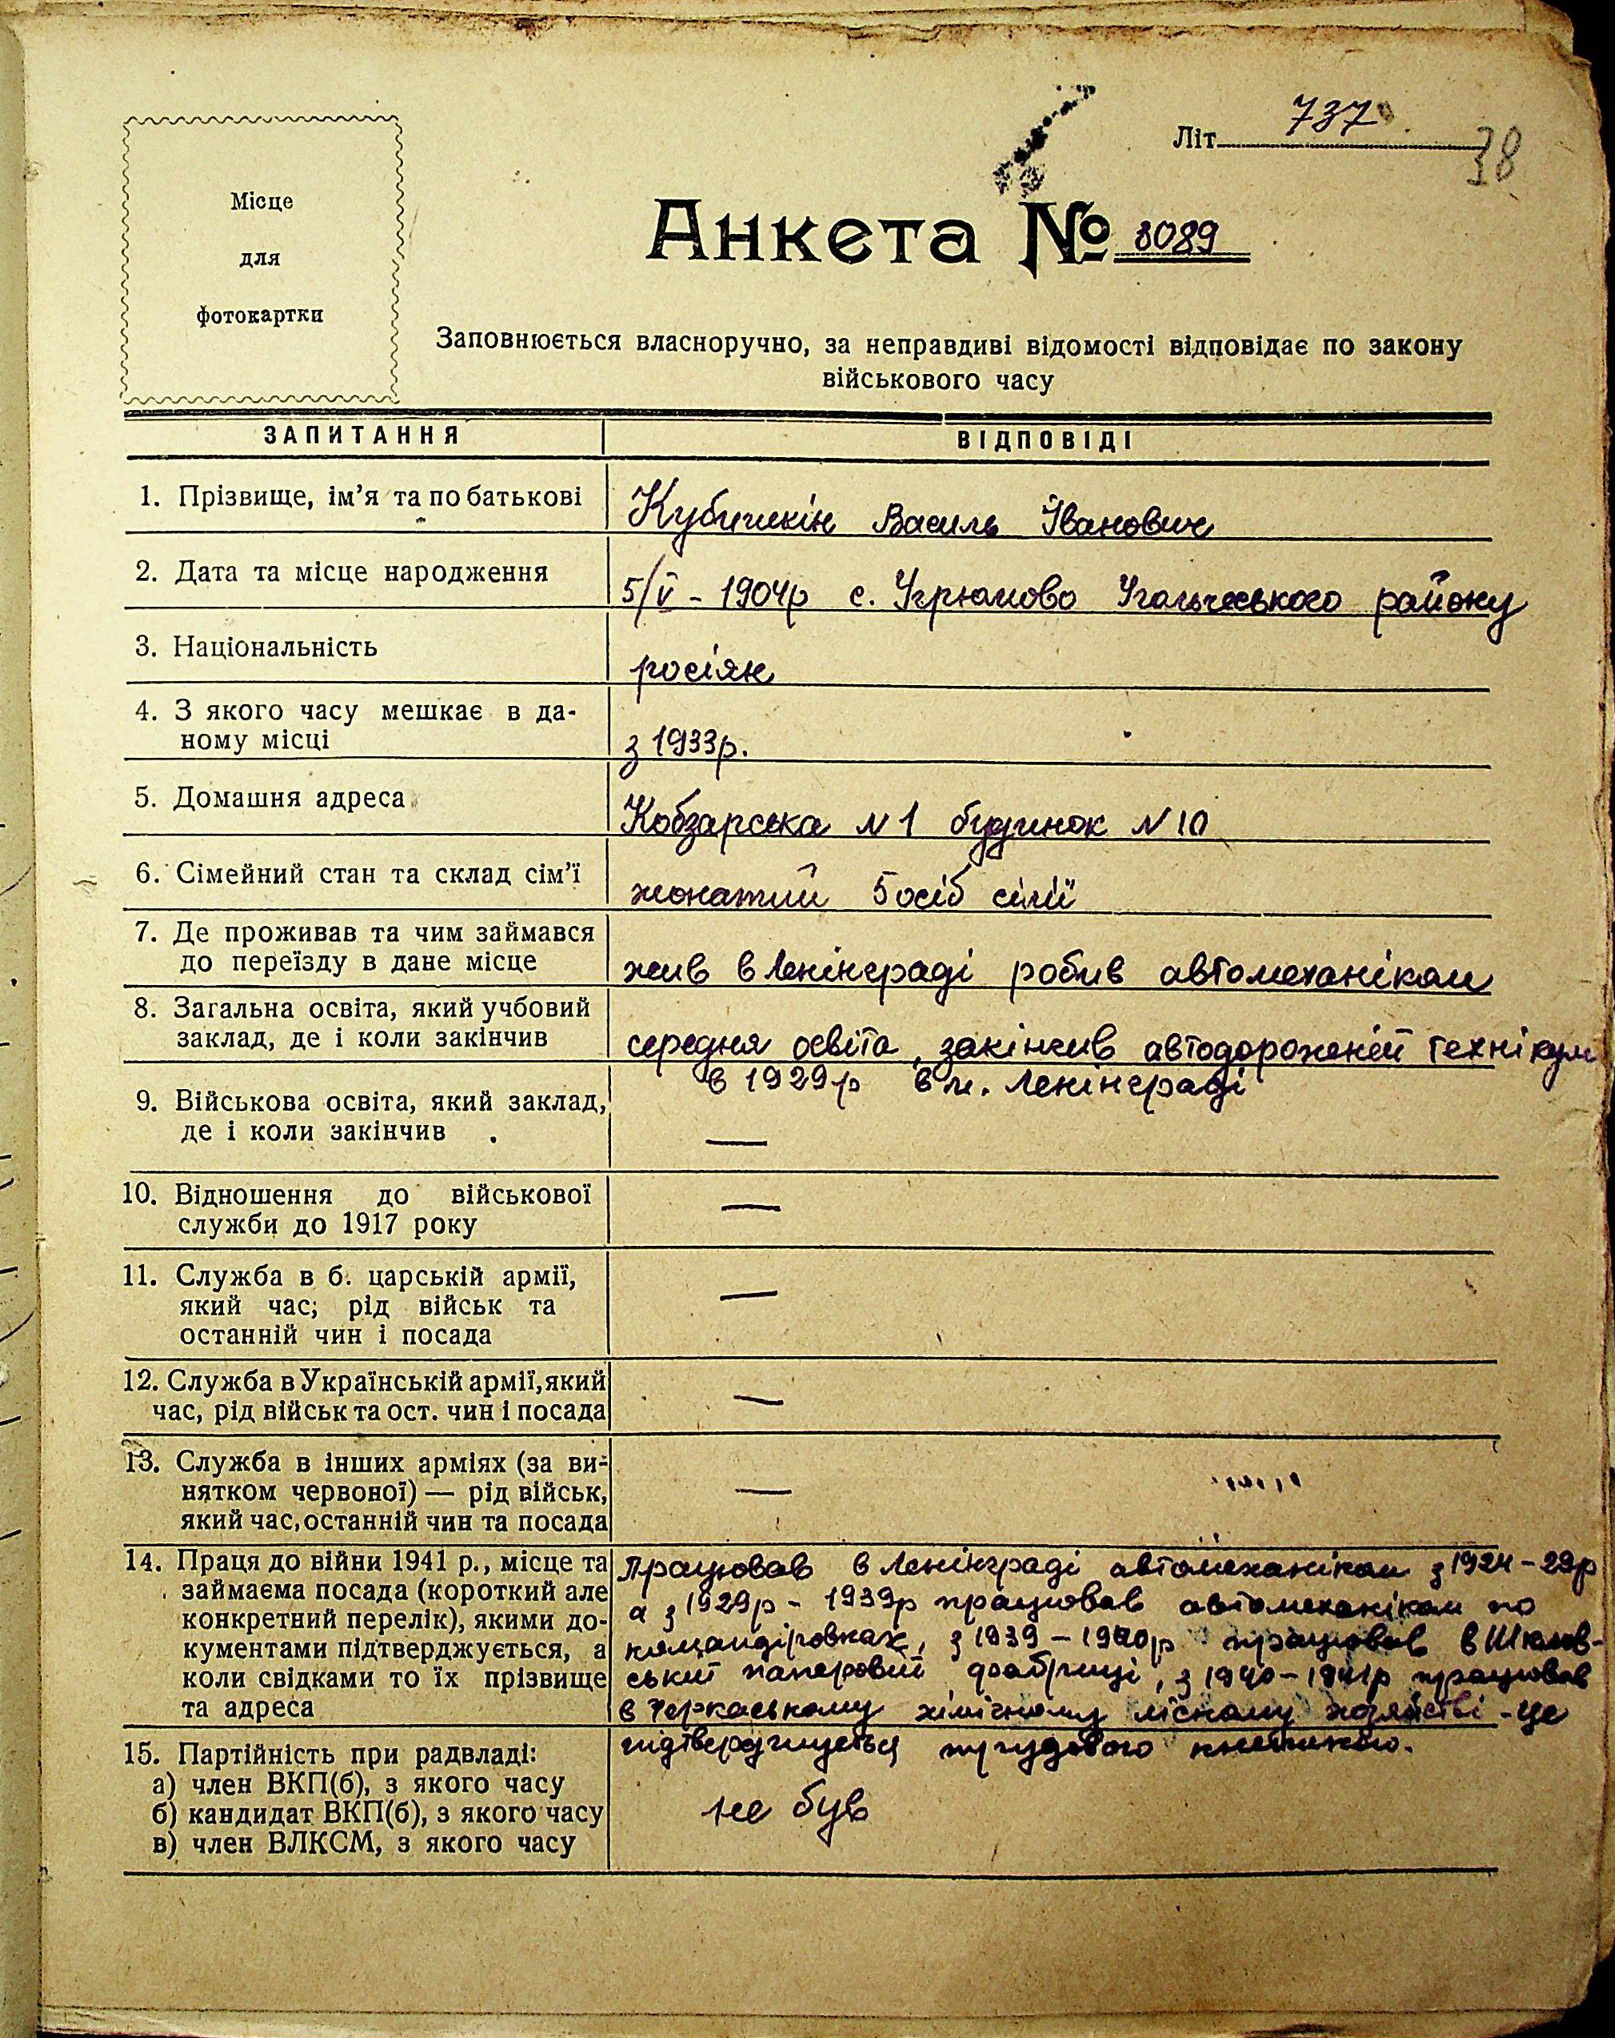 Літ 737
38
Місце
для
фотокартки
Анкета № 8089
Заповнюється власноручно, за неправдиві відомості відповідає по закону
військового часу
ЗАПИТАННЯ
ВІДПОВІДІ
1. Прізвище, ім'я та по батькові
Василь Іванович
2. Дата та місце народження
5/V - 1904р с. Угрюмово району
3. Національність
росіян
4. З якого часу мешкає в да-
ному місці
з 1933р.
5. Домашня адреса
Кобзарська N 1 будинок N 10
6. Сімейний стан та склад сім'ї
жонатий 5 осіб сімії
7. Де проживав та чим займався
до переїзду в дане місце
жив в Ленінграді робив автомеханіком
8. Загальна освіта, який учбовий
заклад, де і коли закінчив
середня освіта, закінчив автодорожній технікум
в 1929р в м. Ленінграді
9. Військова освіта, який заклад,
де і коли закінчив
—
10. Відношення до військової
служби до 1917 року
—
11. Служба в б. царській армії,
який час; рід військ та
останній чин і посада
—
12. Служба в Українській армії, який
час, рід військ та ост. чин і посада
—
13. Служба в інших арміях (за ви-
нятком червоної) — рід військ,
який час, останній чин та посада
—
14. Праця до війни 1941 р., місце та
займаєма посада (короткий але
конкретний перелік), якими до-
кументами підтверджується, а
коли свідками то їх прізвище
та адреса
Працював в Ленінграді автомеханіком з 1924-29р
а з 1929р - 1939р працював автомеханіком по
командіровках, з 1939-1940р працював в Шклов-
ській паперовій фабриці, з 1940-1941р працював
в Черкаському хімічному лісному хозяйстві - це
трудового книжкою.
15. Партійність при радвладі:
а) член ВКП(б), з якого часу
б) кандидат ВКП(б), з якого часу
в) член ВЛКСМ, з якого часу
не був